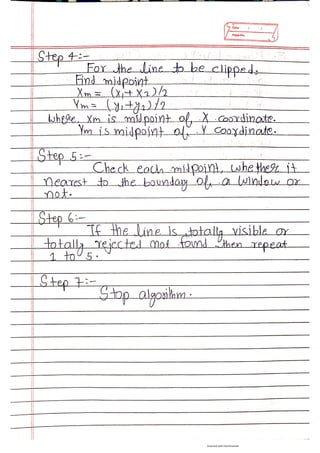 Step 4:-
For the line to be clipped,
Find midpoint
Xm = (x1 + x2)/2
Ym = (y1 + y2)/2
where, Xm is midpoint of X coordinate.
Ym is midpoint of Y coordinate.
Step 5:-
Check each midpoint, whether it
nearest to the boundary of a window or
not.
Step 6:-
If the line is totally visible or
totally rejected not found then repeat
1 to 5.
Step 7:-
Stop algorithm.